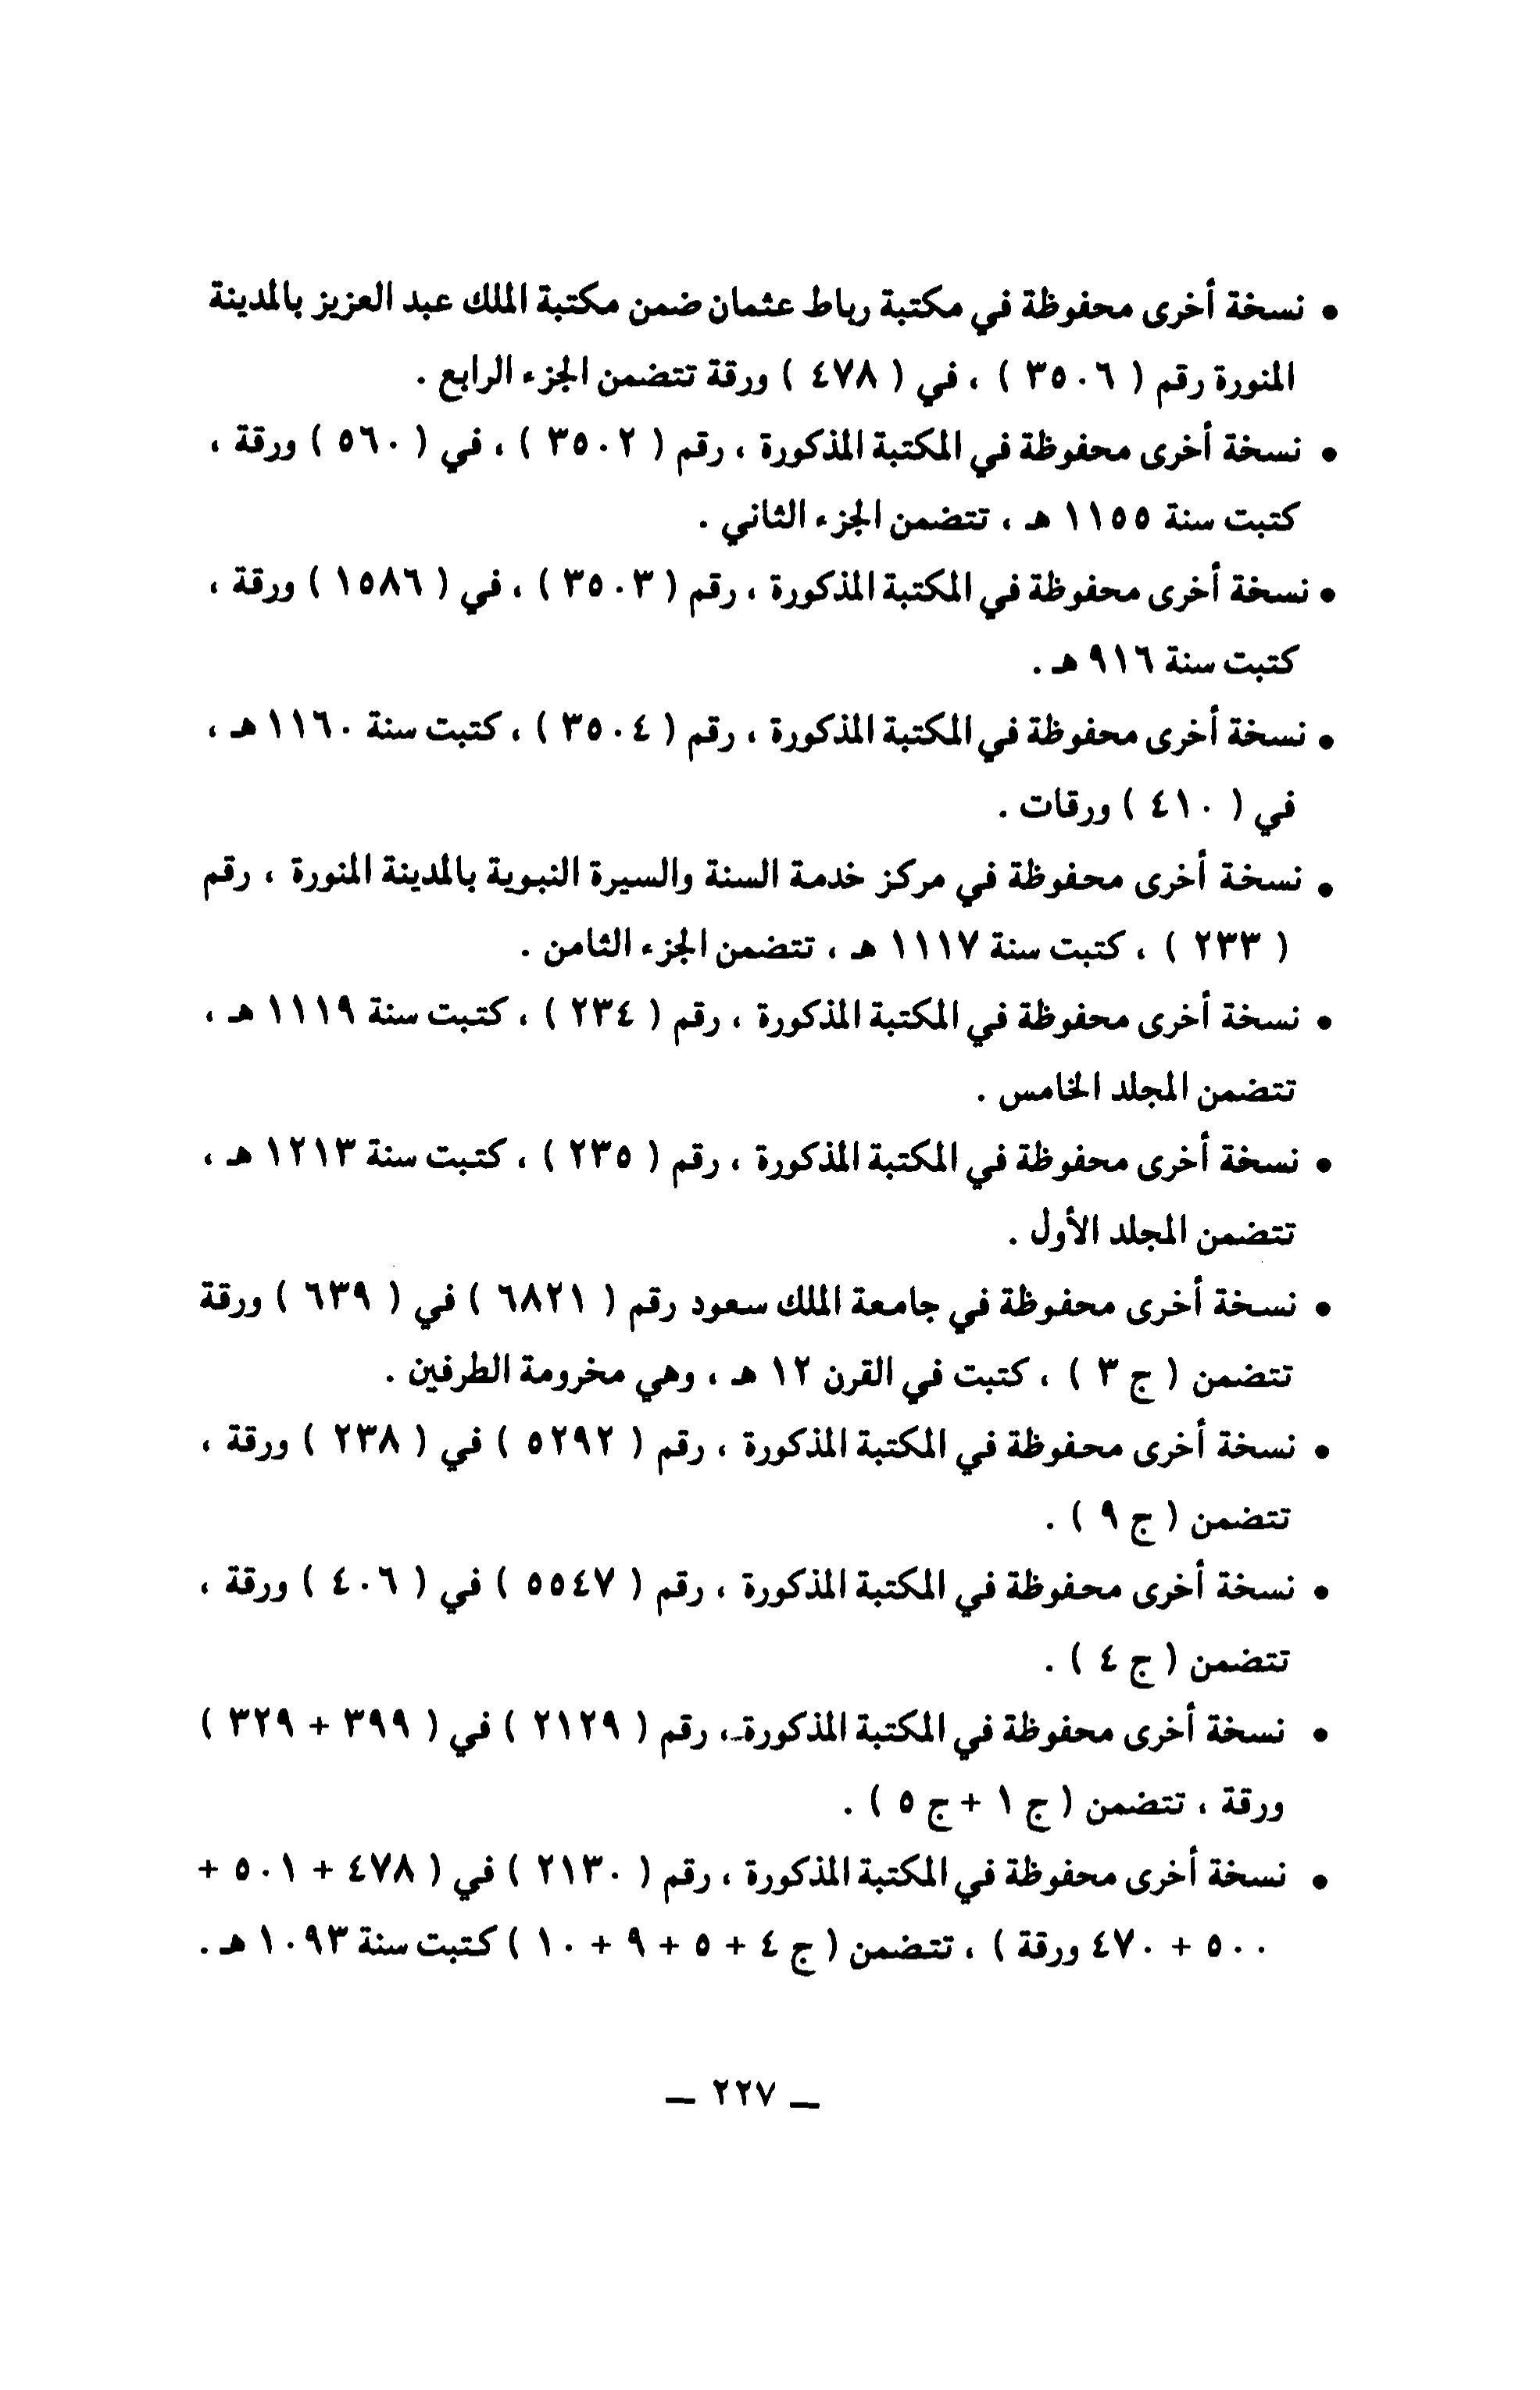 • نسخة أخرى محفوظة في مكتبة رباط عثمان ضمن مكتبة الملك عبد العزيز بالمدينة
المنورة رقم ( ٣٥٠٦ ) ، في ( ٤٧٨ ) ورقة تتضمن الجزء الرابع .
• نسخة أخرى محفوظة في المكتبة المذكورة ، رقم ( ٣٥٠٢ ) ، في ( ٥٦٠ ) ورقة ،
كتبت سنة ١١٥٥ هـ ، تتضمن الجزء الثاني .
• نسخة أخرى محفوظة في المكتبة المذكورة ، رقم ( ٣٥٠٣ ) ، في ( ١٥٨٦ ) ورقة ،
كتبت سنة ٩١٦ هـ .
• نسخة أخرى محفوظة في المكتبة المذكورة ، رقم ( ٣٥٠٤ ) ، كتبت سنة ١١٦٠ هـ ،
في ( ٤١٠ ) ورقات .
• نسخة أخرى محفوظة في مركز خدمة السنة والسيرة النبوية بالمدينة المنورة ، رقم
( ٢٣٣ ) ، كتبت سنة ١١١٧ هـ ، تتضمن الجزء الثامن .
• نسخة أخرى محفوظة في المكتبة المذكورة ، رقم ( ٢٣٤ ) ، كتبت سنة ١١١٩ هـ ،
تتضمن المجلد الخامس .
• نسخة أخرى محفوظة في المكتبة المذكورة ، رقم ( ٢٣٥ ) ، كتبت سنة ١٢١٣ هـ ،
تتضمن المجلد الأول .
• نسخة أخرى محفوظة في جامعة الملك سعود رقم ( ٦٨٢١ ) في ( ٦٣٩ ) ورقة
تتضمن ( ج ٣ ) ، كتبت في القرن ١٢ هـ ، وهي مخرومة الطرفين .
• نسخة أخرى محفوظة في المكتبة المذكورة ، رقم ( ٥٢٩٢ ) في ( ٢٣٨ ) ورقة ،
تتضمن ( ج ٩ ) .
• نسخة أخرى محفوظة في المكتبة المذكورة ، رقم ( ٥٥٤٧ ) في ( ٤٠٦ ) ورقة ،
تتضمن ( ج ٤ ) .
• نسخة أخرى محفوظة في المكتبة المذكورة ، رقم ( ٢١٢٩ ) في ( ٣٩٩ + ٣٢٩ )
ورقة ، تتضمن ( ج ١ + ج ٥ ) .
• نسخة أخرى محفوظة في المكتبة المذكورة ، رقم ( ٢١٣٠ ) في ( ٤٧٨ + ٥٠١ +
٥٠٠ + ٤٧٠ ورقة ) ، تتضمن ( ج ٤ + ٥ + ٩ + ١٠ ) كتبت سنة ١٠٩٣ هـ .
ـ ٢٢٧ ـ